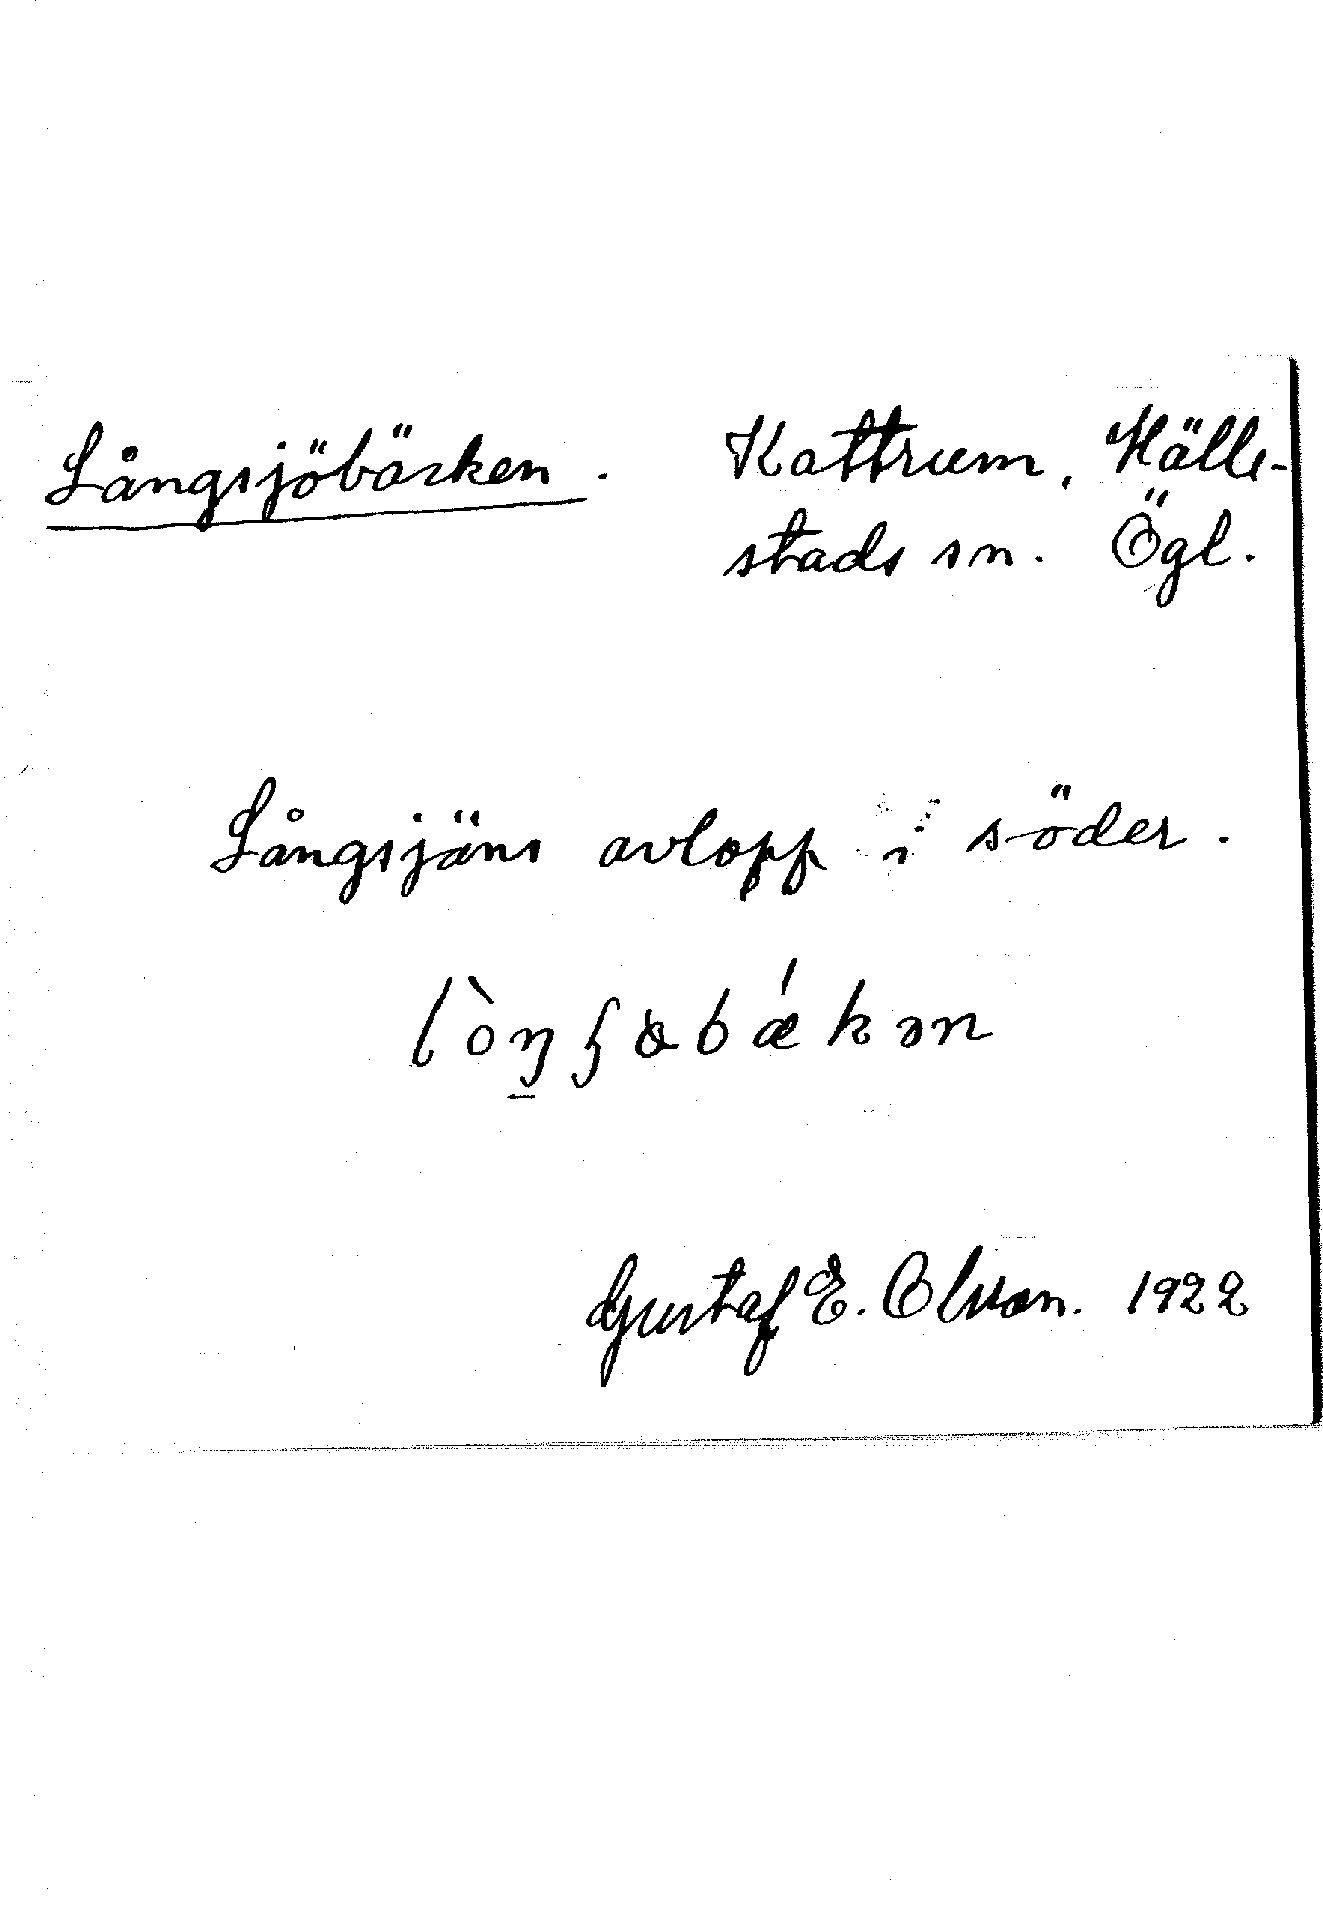 Långsjöbäcken. Kattrum, Hälle-
stads sn. Ögl.
Långsjäns avlopp i söder.
Gustaf E. Olsson. 1922